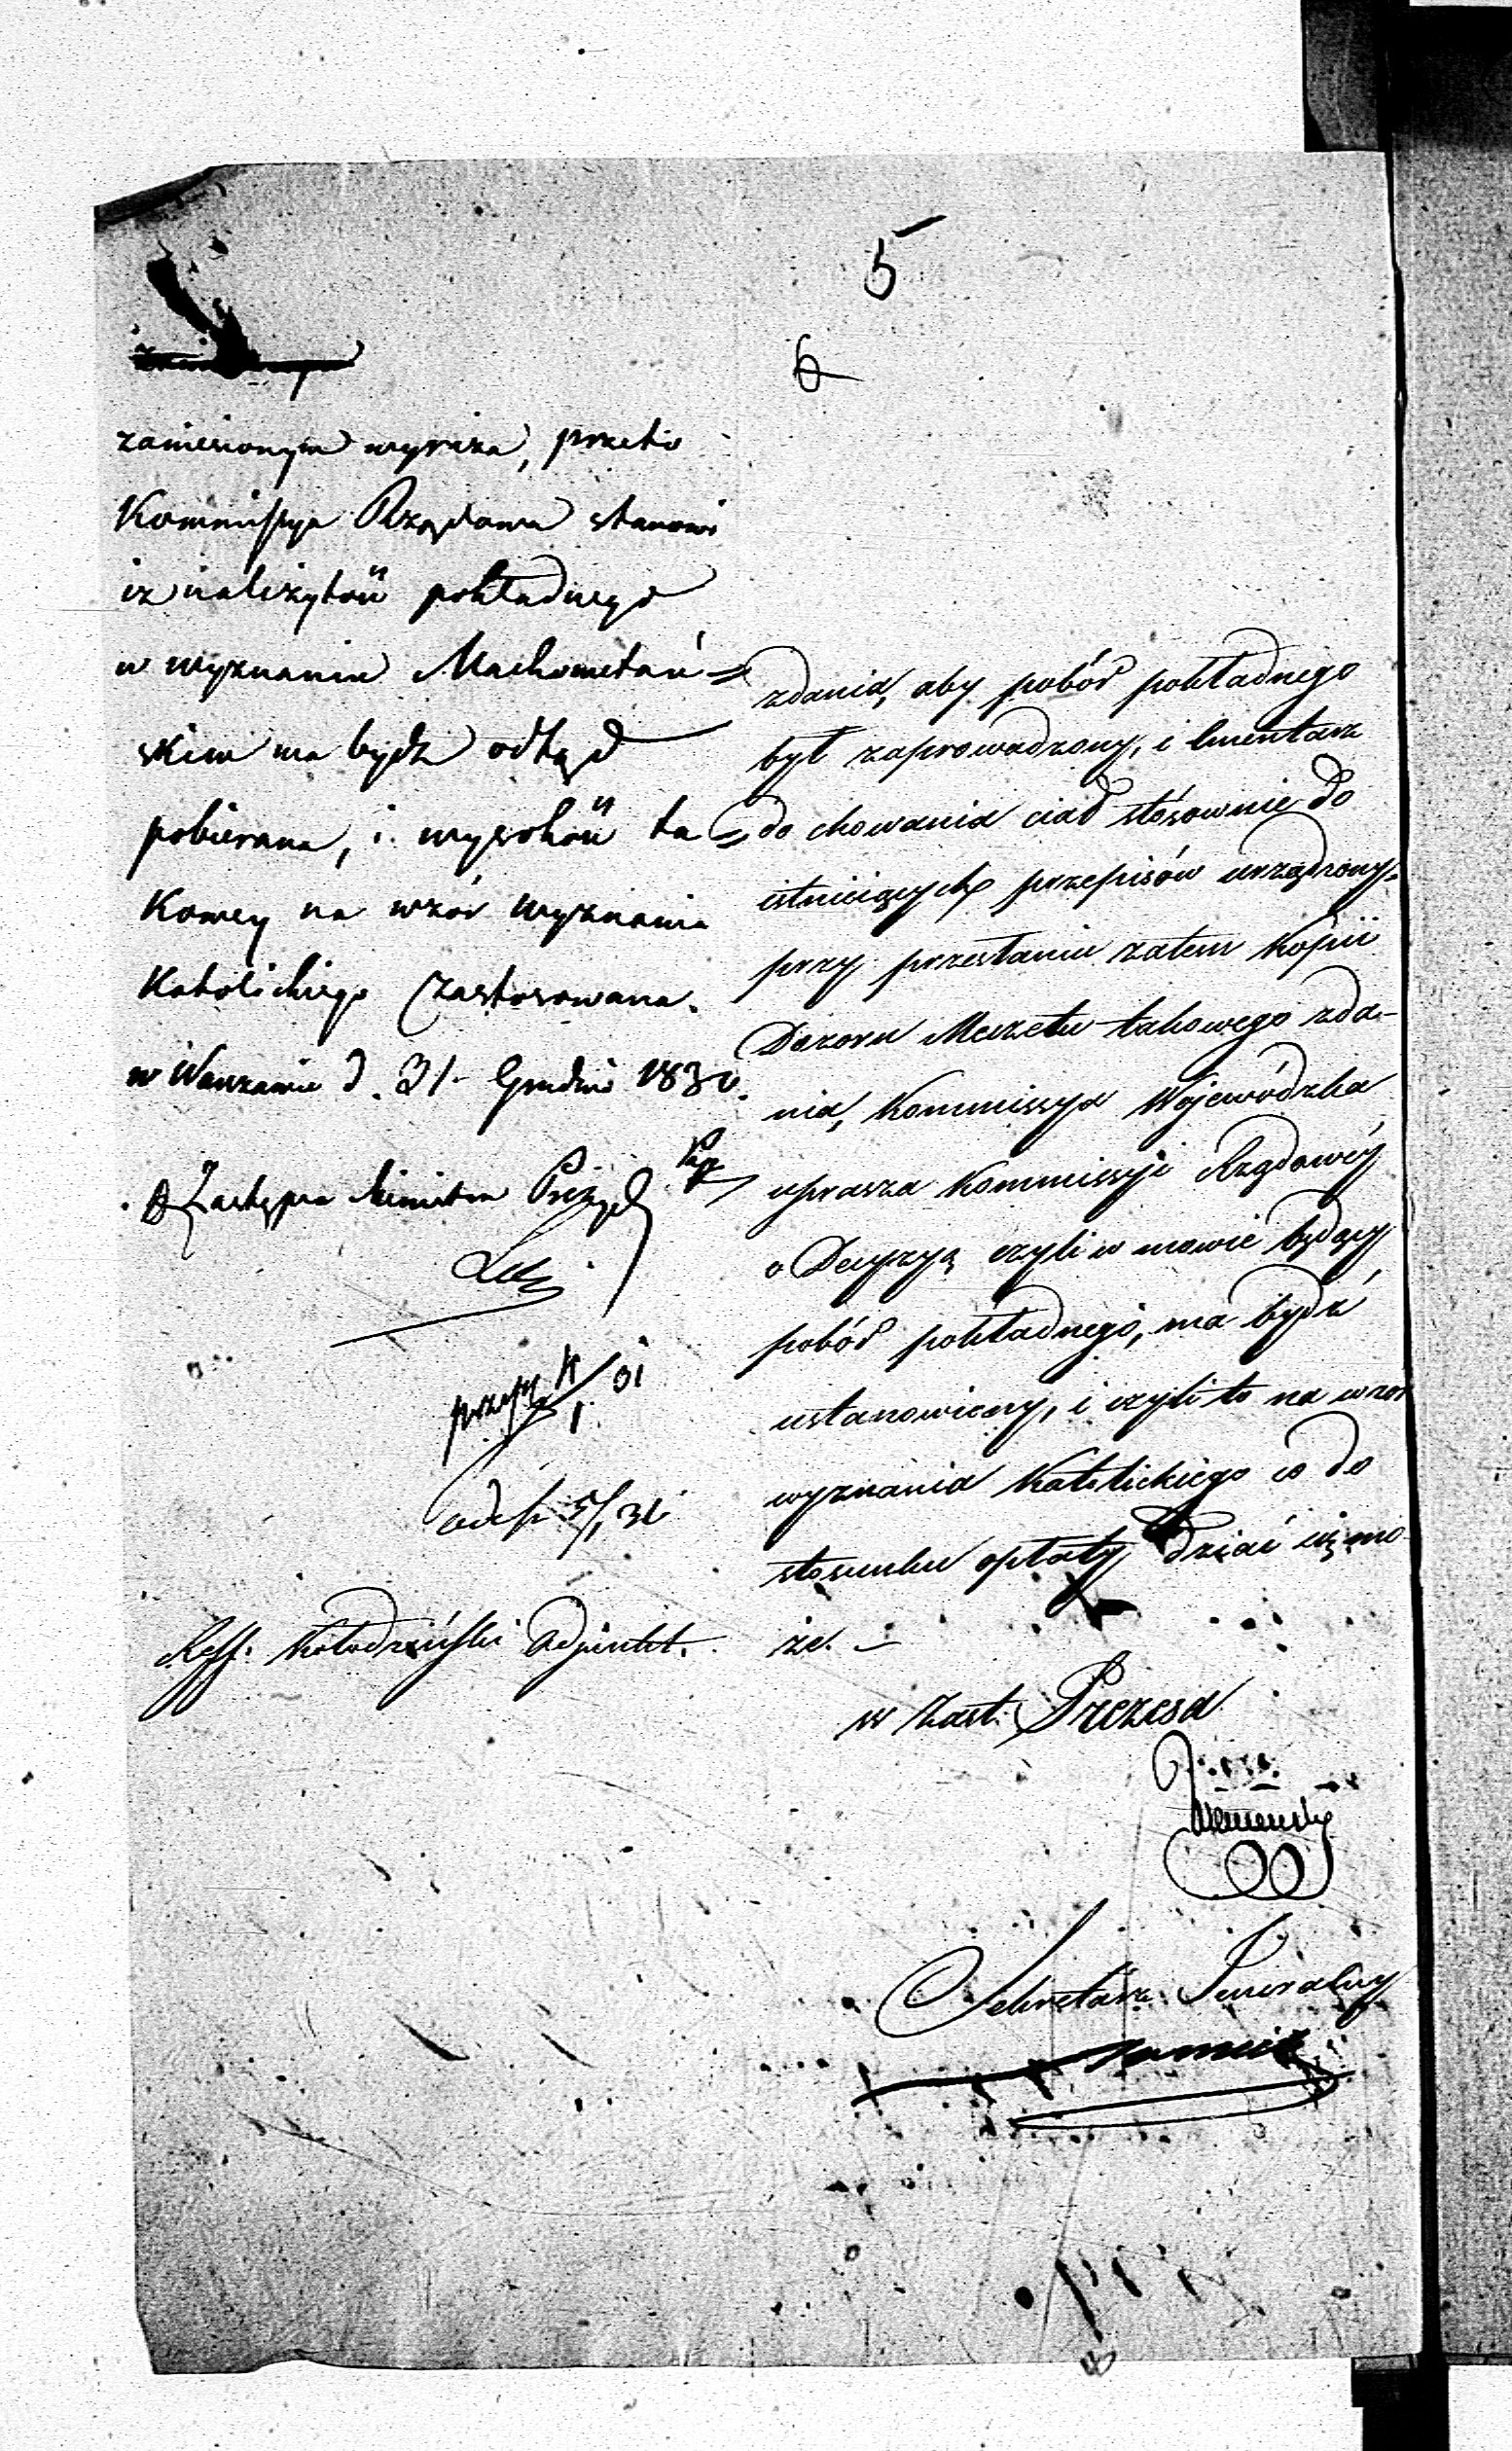 5
6
zaniesionym wyraża, przeto
Kommissya Rządowa stanowi
iż należytość pokładnego
w wyznaniu Machometań=
skim ma bydź odtąd
pobierana, i wysokość ta=
kowey na wzór wyznania
Katolickiego zastosowana.
w Warszawie d. 31 Grudnia 1830.
Zastępca Ministra Prezyd
5/1 31
Reff. Kołodziński Adjunkt.
zdania, aby pobór pokładnego
był zaprowadzony, i Cmentarz
do chowania ciał stósownie do
istnieiących przepisów urządzony,
przy przesłaniu zatem Kopii
Dozoru Meczetu takowego zda-
nia, Kommissya Wojewódzka
uprasza Kommissyi Rządowéy
o Decyzyą czyli w mowie będący
pobór pokładnego, ma bydź
ustanowiony, i czyli to na wzór
wyznania Katolickiego co do
stosunku opłaty dziać się mo-
że. —
w Zast. Prezesa
Sekretarz Jeneralny